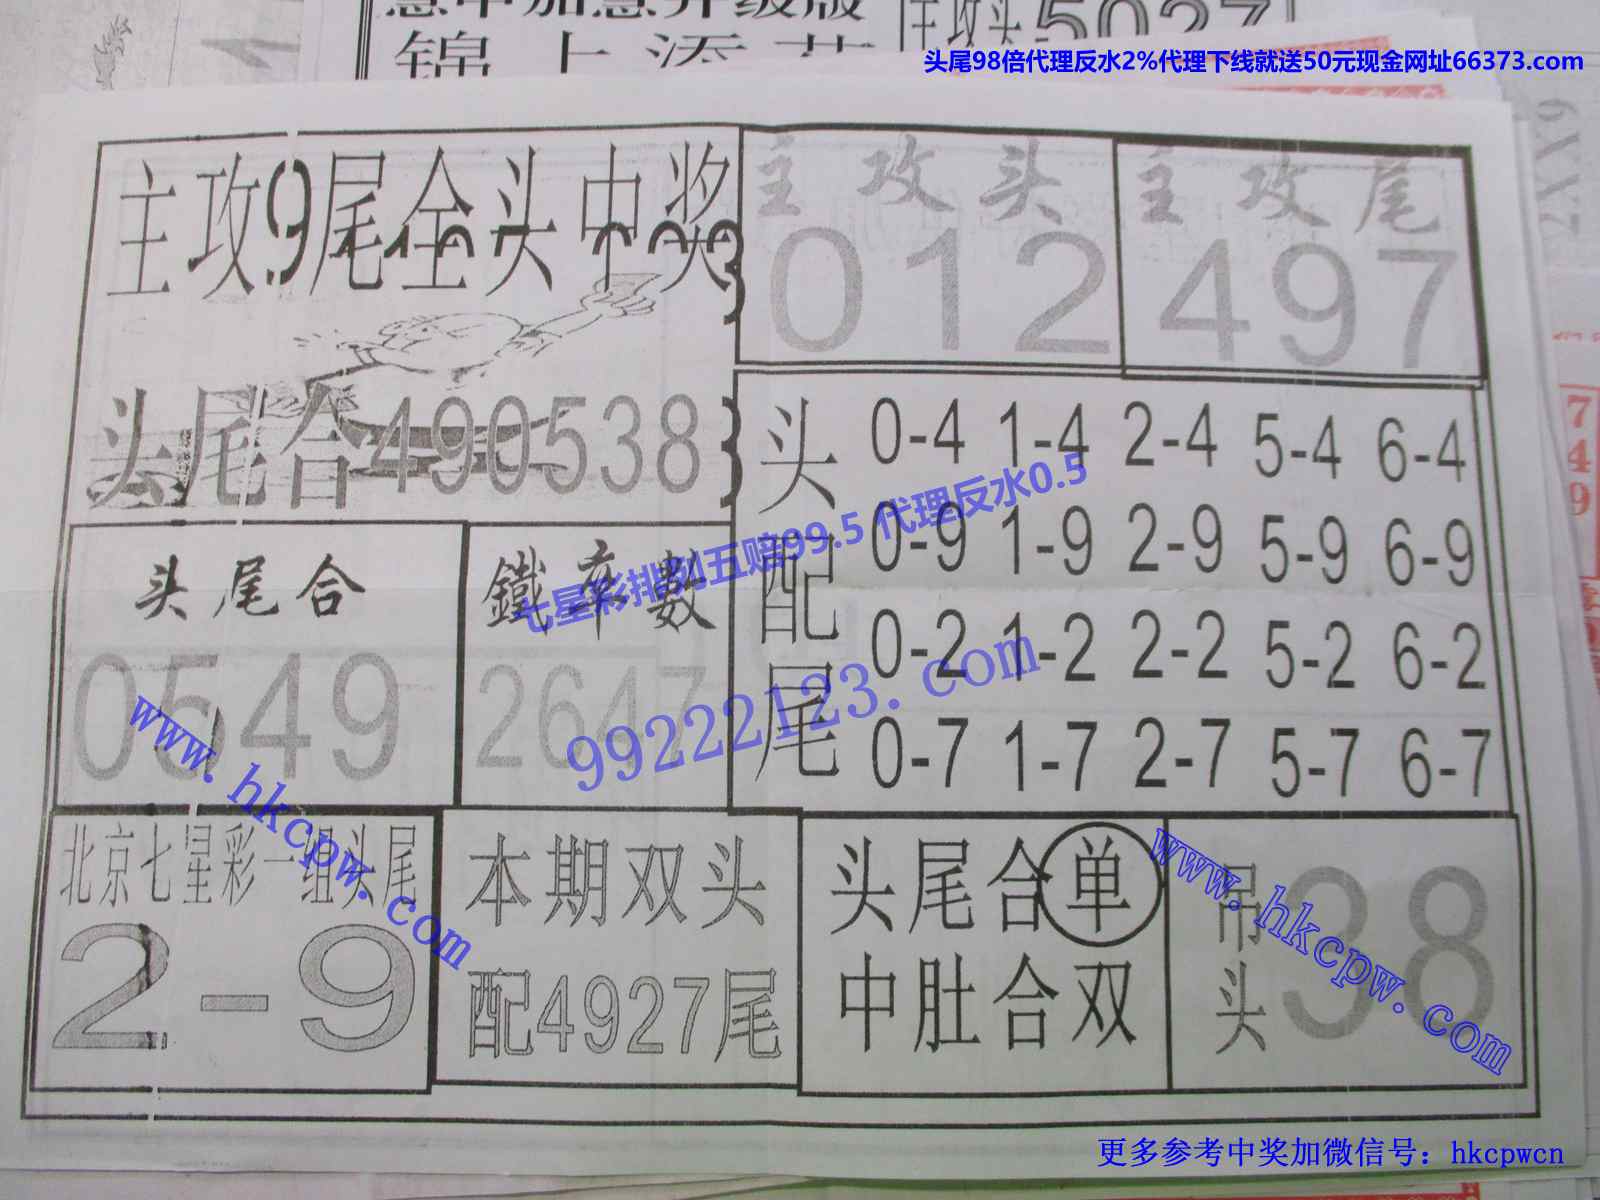 主攻头5027
锦上添花
头尾98倍代理反水2%代理下线就送50元现金网址66373.com
主攻9尾全头中奖
主攻头
012
主攻尾
497
头尾合490538
头配尾
0-4 1-4 2-4 5-4 6-4
0-9 1-9 2-9 5-9 6-9
0-2 1-2 2-2 5-2 6-2
0-7 1-7 2-7 5-7 6-7
头尾合
0549
鐵率數
2647
七星彩排列五赔99.5 代理反水0.5
99222123.com
www.hkcpw.com
北京七星彩一组头尾
2-9
本期双头
配4927尾
头尾合单
中肚合双
吊头38
www.hkcpw.com
749
更多参考中奖加微信号：hkcpwcn